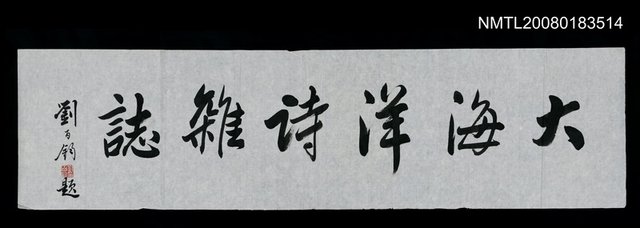 NMTL20080183514
大海洋詩雜誌
劉百鈞題